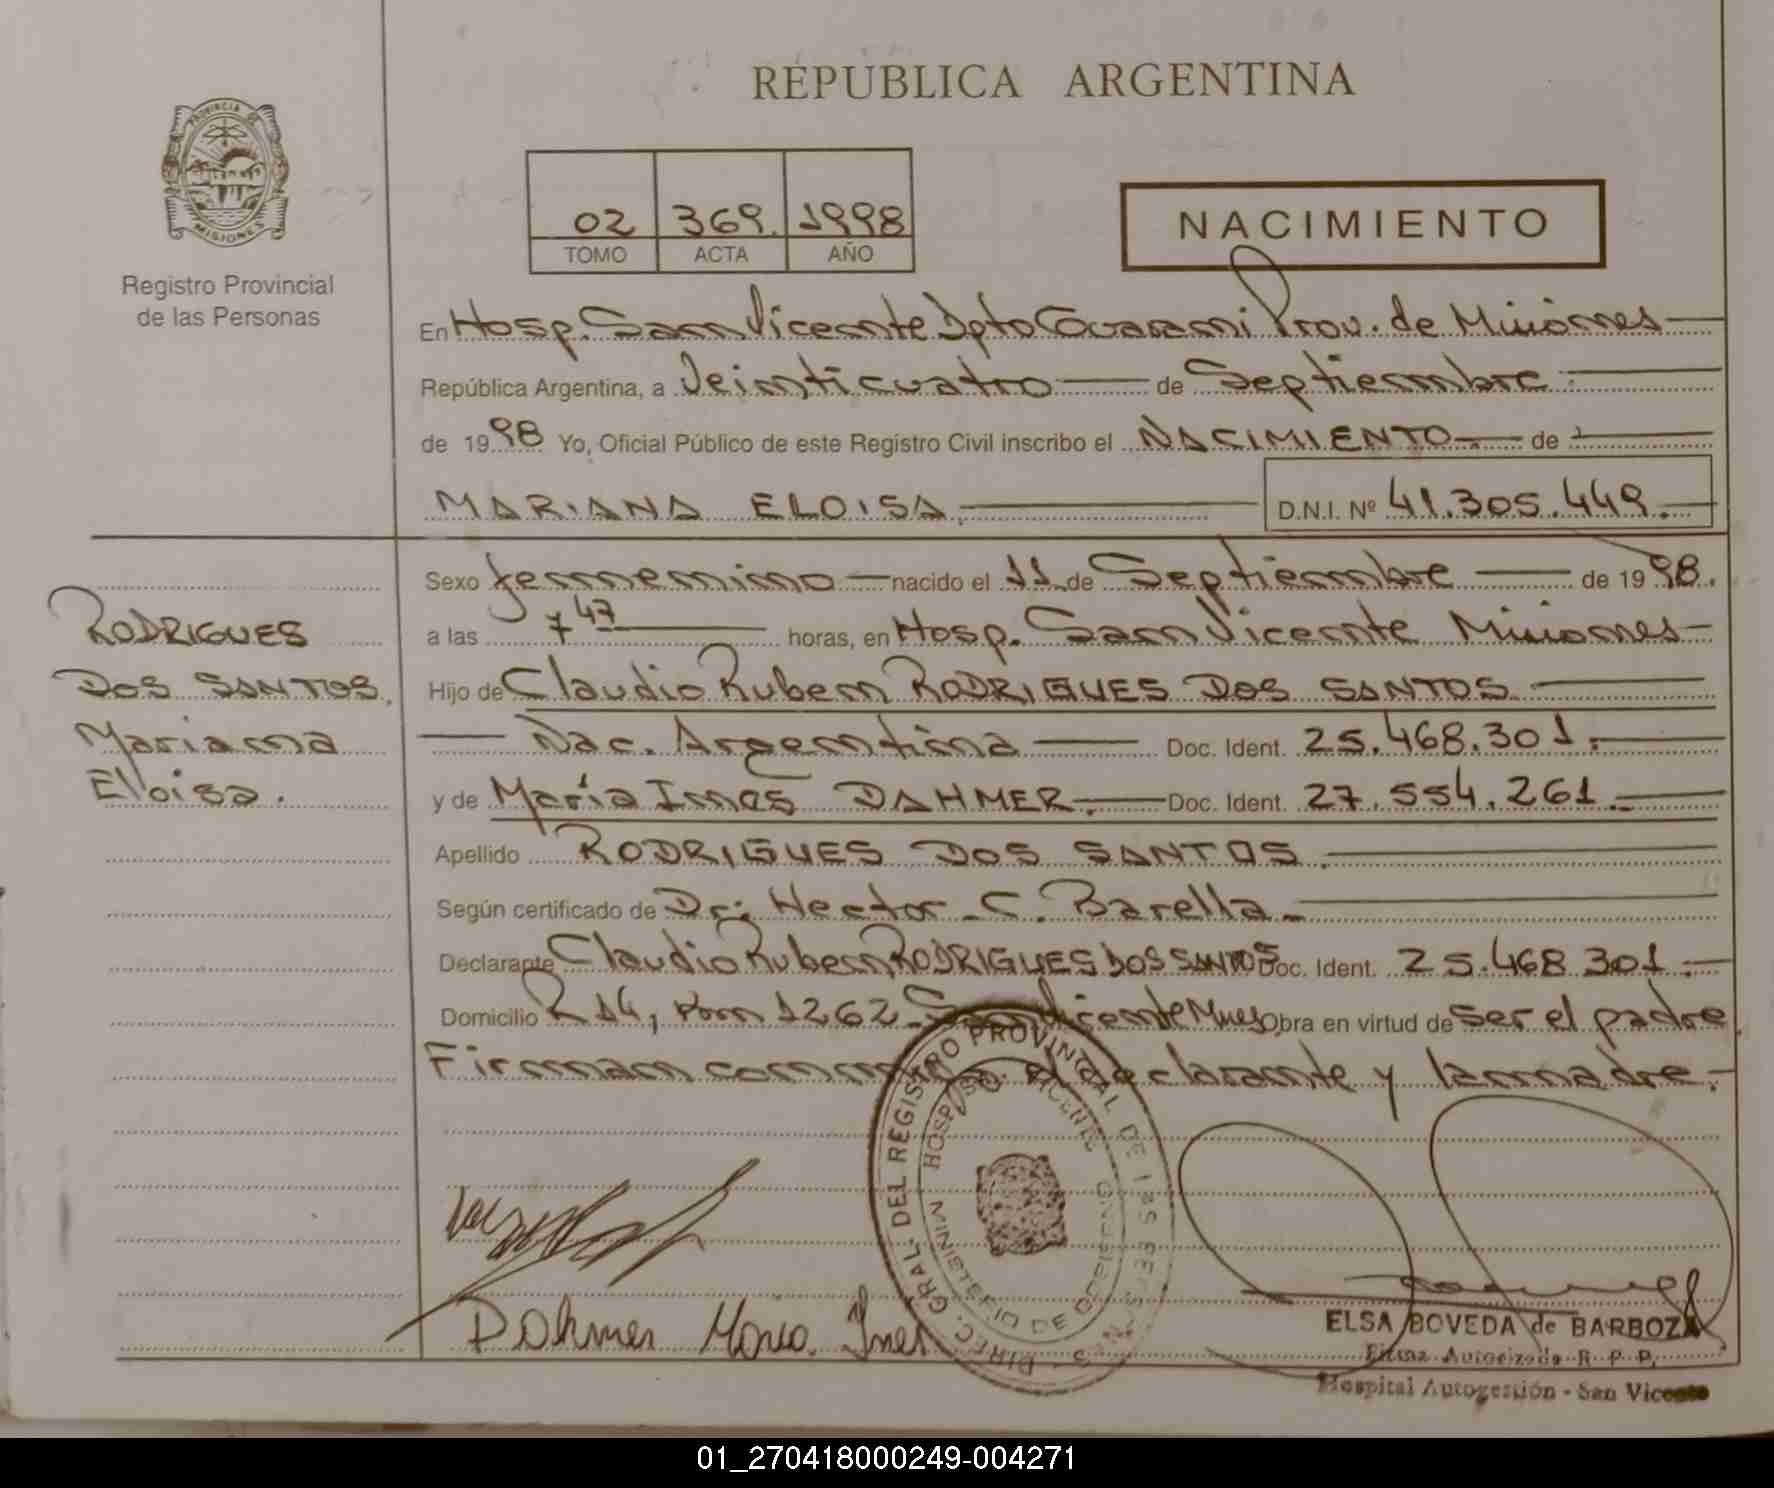 REPUBLICA ARGENTINA
PROVINCIA DE
MISIONES
Registro Provincial
de las Personas
02 369. 1998
TOMO ACTA AÑO
NACIMIENTO
En Hosp. San Vicente Dpto Guarani Prov. de Misiones
República Argentina, a Veinticuatro de Septiembre
de 1998 Yo, Oficial Público de este Registro Civil inscribo el NACIMIENTO de
MARIANA ELOISA. D.N.I. Nº 41.305.449.
RODRIGUES
DOS SANTOS,
Mariana
Eloisa.
Sexo femenino nacido el 11 de Septiembre de 1998.
a las 7 47 horas, en Hosp. San Vicente Misiones
Hijo de Claudio Ruben RODRIGUES DOS SANTOS
Nac. Argentina Doc. Ident. 25.468.301.
y de María Ines DAHMER. Doc. Ident. 27.554.261.
Apellido RODRIGUES DOS SANTOS.
Según certificado de Dr: Hector C. Barella
Declarante Claudio Ruben RODRIGUES DOS SANTOS Doc. Ident. 25.468.301.
Domicilio R 14, Km 1262 San Vicente Mnes Obra en virtud de ser el padre
Firman conmigo el declarante y la madre.
DIREC. GRAL. DEL REGISTRO PROVINCIAL DE LAS PERSONAS
HOSP SAN VICENTE
MINISTERIO DE GOBIERNO
Dahmer Maria Ines
ELSA BOVEDA de BARBOZA
Firma Autorizada R. P. P.
Hospital Autogestión - San Vicente
01_270418000249-004271